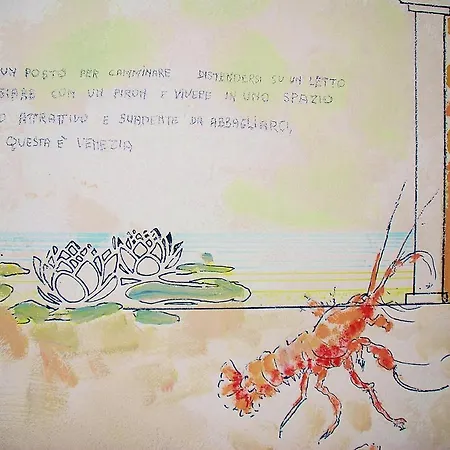 UN POSTO PER CAMMINARE DISTENDERSI SU UN LETTO
CON UN PIRON E VIVERE IN UNO SPAZIO
ATTRATTIVO E SUADENTE DA ABBAGLIARCI,
QUESTA È VENEZIA